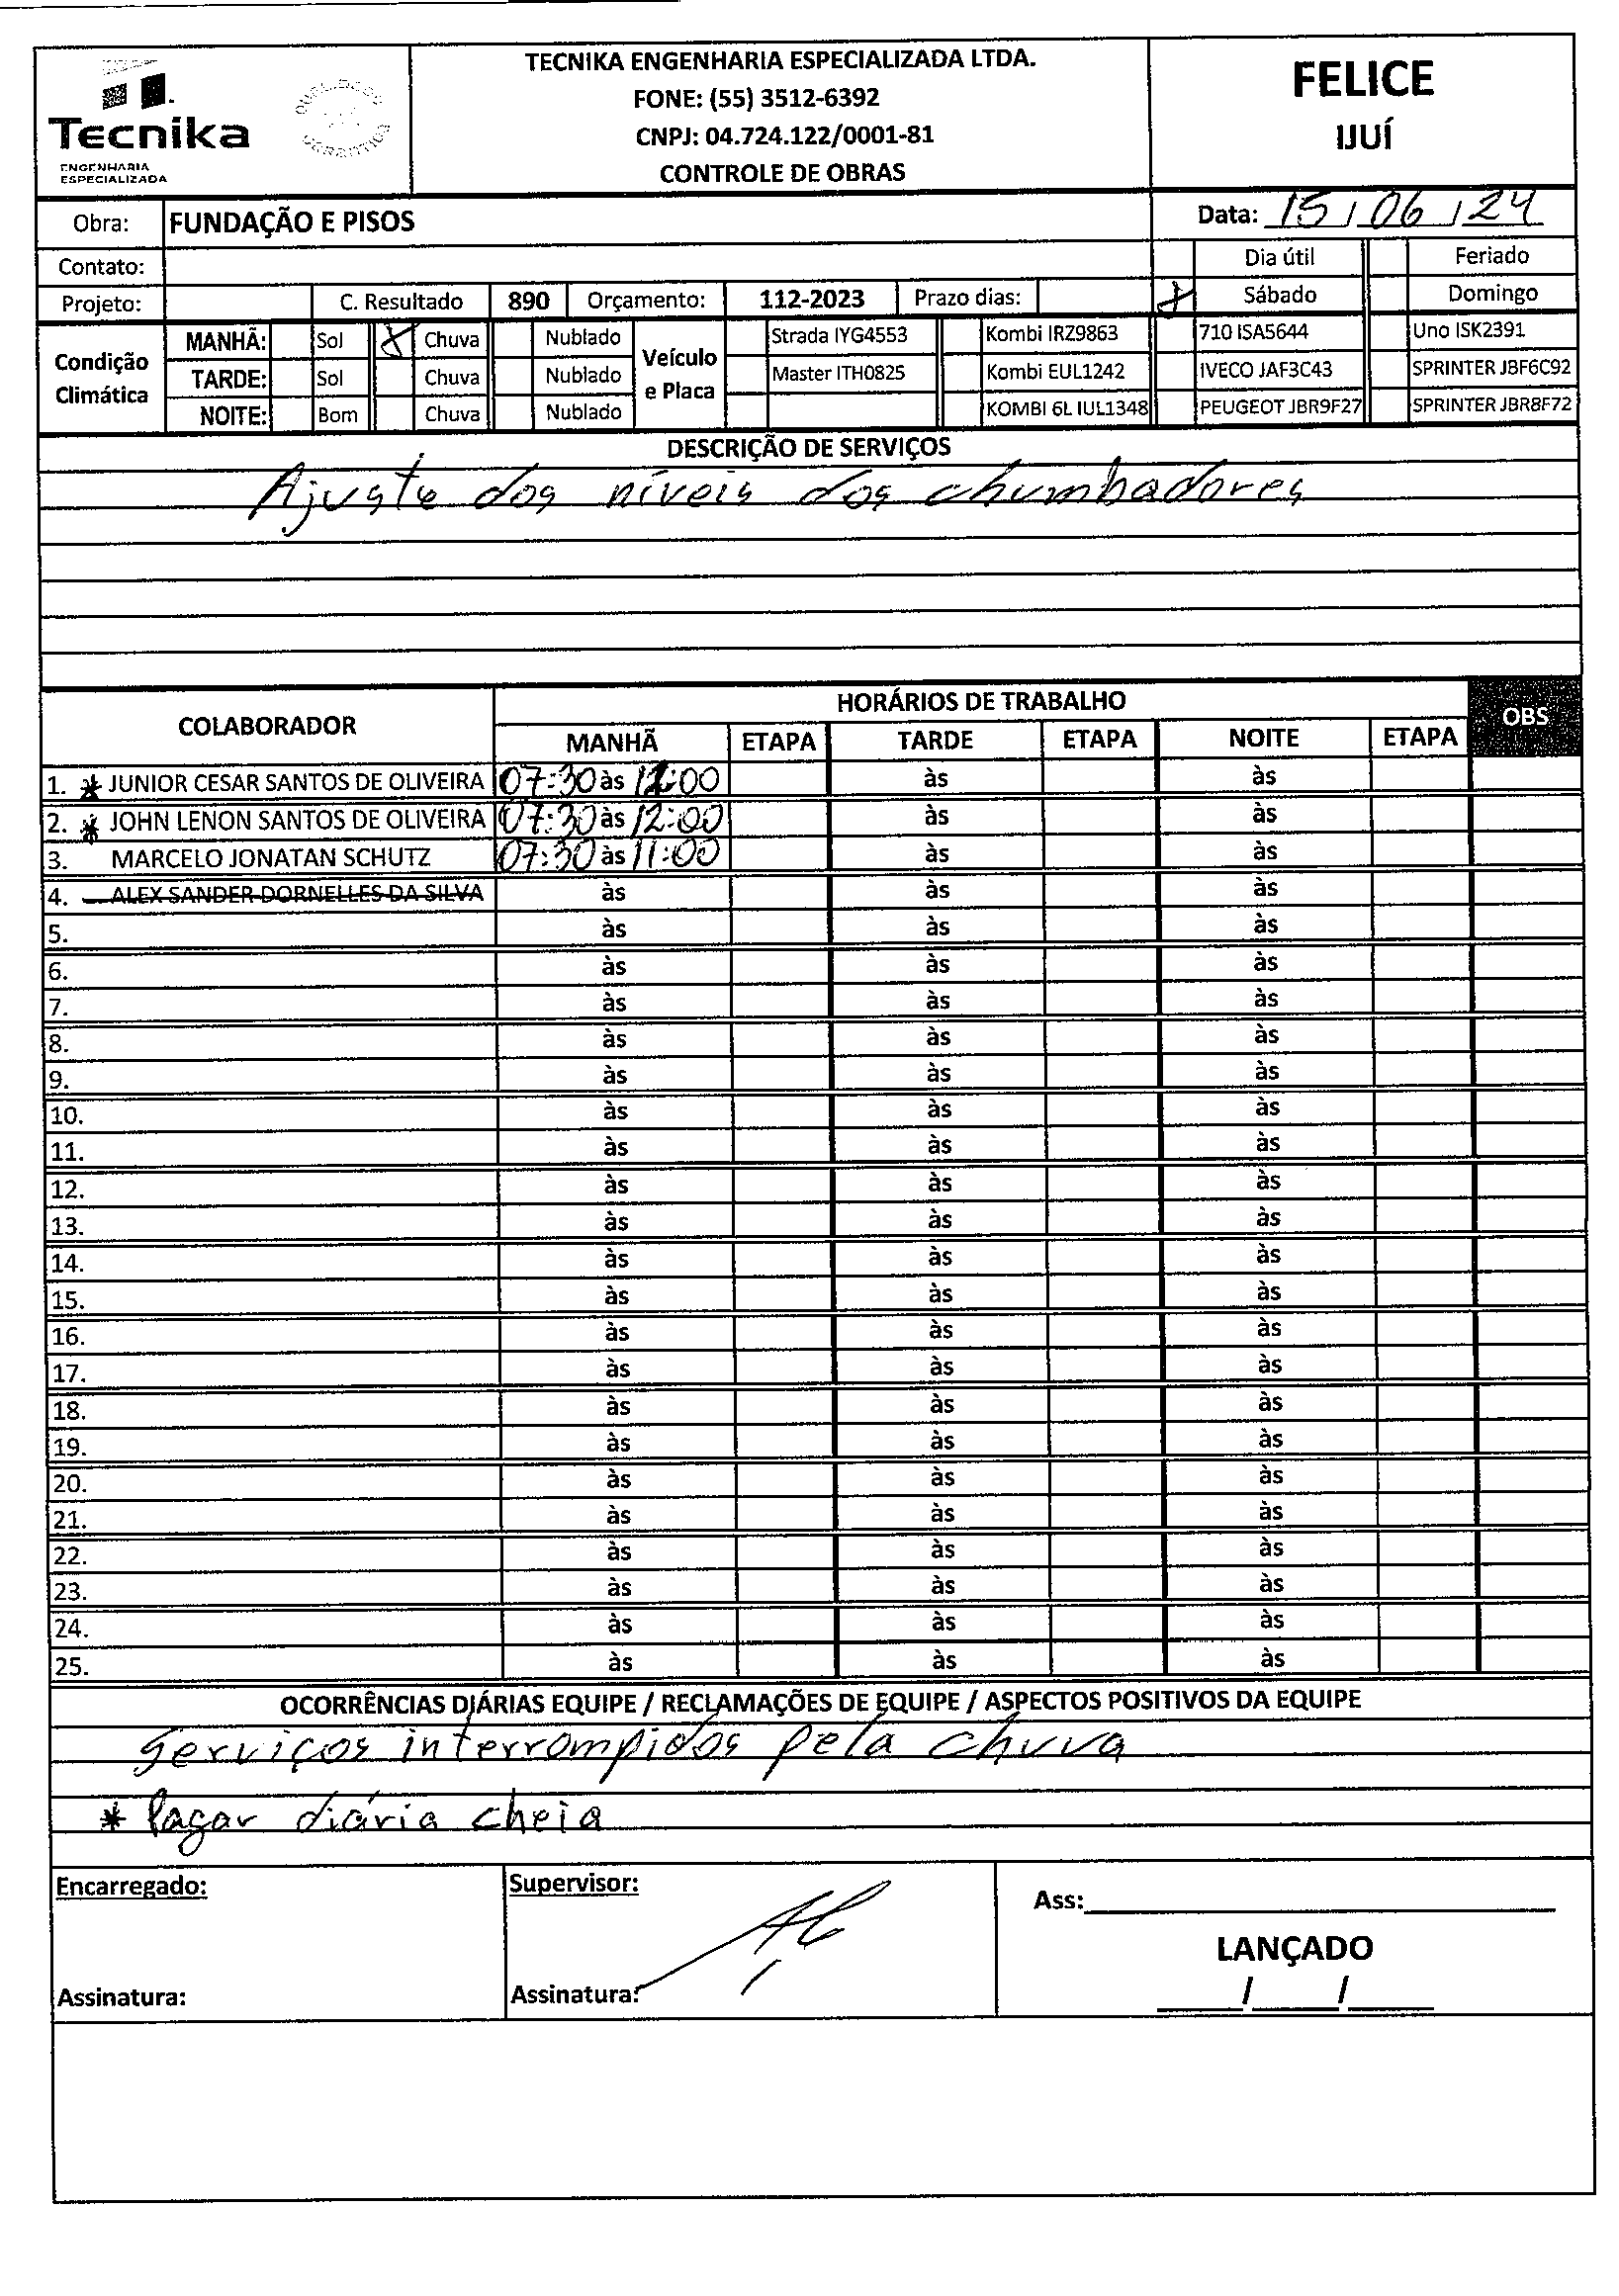 TECNIKA ENGENHARIA ESPECIALIZADA LTDA.
FONE: (55) 3512-6392
CNPJ: 04.724.122/0001-81
CONTROLE DE OBRAS
Tecnika
ENGENHARIA
ESPECIALIZADA
FELICE
IJUÍ
Obra: FUNDAÇÃO E PISOS
Data: 15/06/24
Contato:
Dia útil Feriado
Projeto: C. Resultado 890 Orçamento: 112-2023 Prazo dias: X Sábado Domingo
Condição Climática
MANHÃ: Sol X Chuva Nublado
TARDE: Sol Chuva Nublado
NOITE: Bom Chuva Nublado
Veículo e Placa
Strada IYG4553 Kombi IRZ9863 710 ISA5644 Uno ISK2391
Master ITH0825 Kombi EUL1242 IVECO JAF3C43 SPRINTER JBF6C92
KOMBI 6L IUL1348 PEUGEOT JBR9F27 SPRINTER JBR8F72
DESCRIÇÃO DE SERVIÇOS
Ajuste dos níveis dos chumbadores
COLABORADOR HORÁRIOS DE TRABALHO OBS
MANHÃ ETAPA TARDE ETAPA NOITE ETAPA
1. * JUNIOR CESAR SANTOS DE OLIVEIRA 07:30 às 12:00 às às
2. * JOHN LENON SANTOS DE OLIVEIRA 07:30 às 12:00 às às
3. MARCELO JONATAN SCHUTZ 07:30 às 11:00 às às
4. ALEX SANDER DORNELLES DA SILVA às às às
5. às às às
6. às às às
7. às às às
8. às às às
9. às às às
10. às às às
11. às às às
12. às às às
13. às às às
14. às às às
15. às às às
16. às às às
17. às às às
18. às às às
19. às às às
20. às às às
21. às às às
22. às às às
23. às às às
24. às às às
25. às às às
OCORRÊNCIAS DIÁRIAS EQUIPE / RECLAMAÇÕES DE EQUIPE / ASPECTOS POSITIVOS DA EQUIPE
Serviços interrompidos pela chuva
* Pagar diária cheia
Encarregado: Supervisor: Ass:
LANÇADO
Assinatura: Assinatura: / /